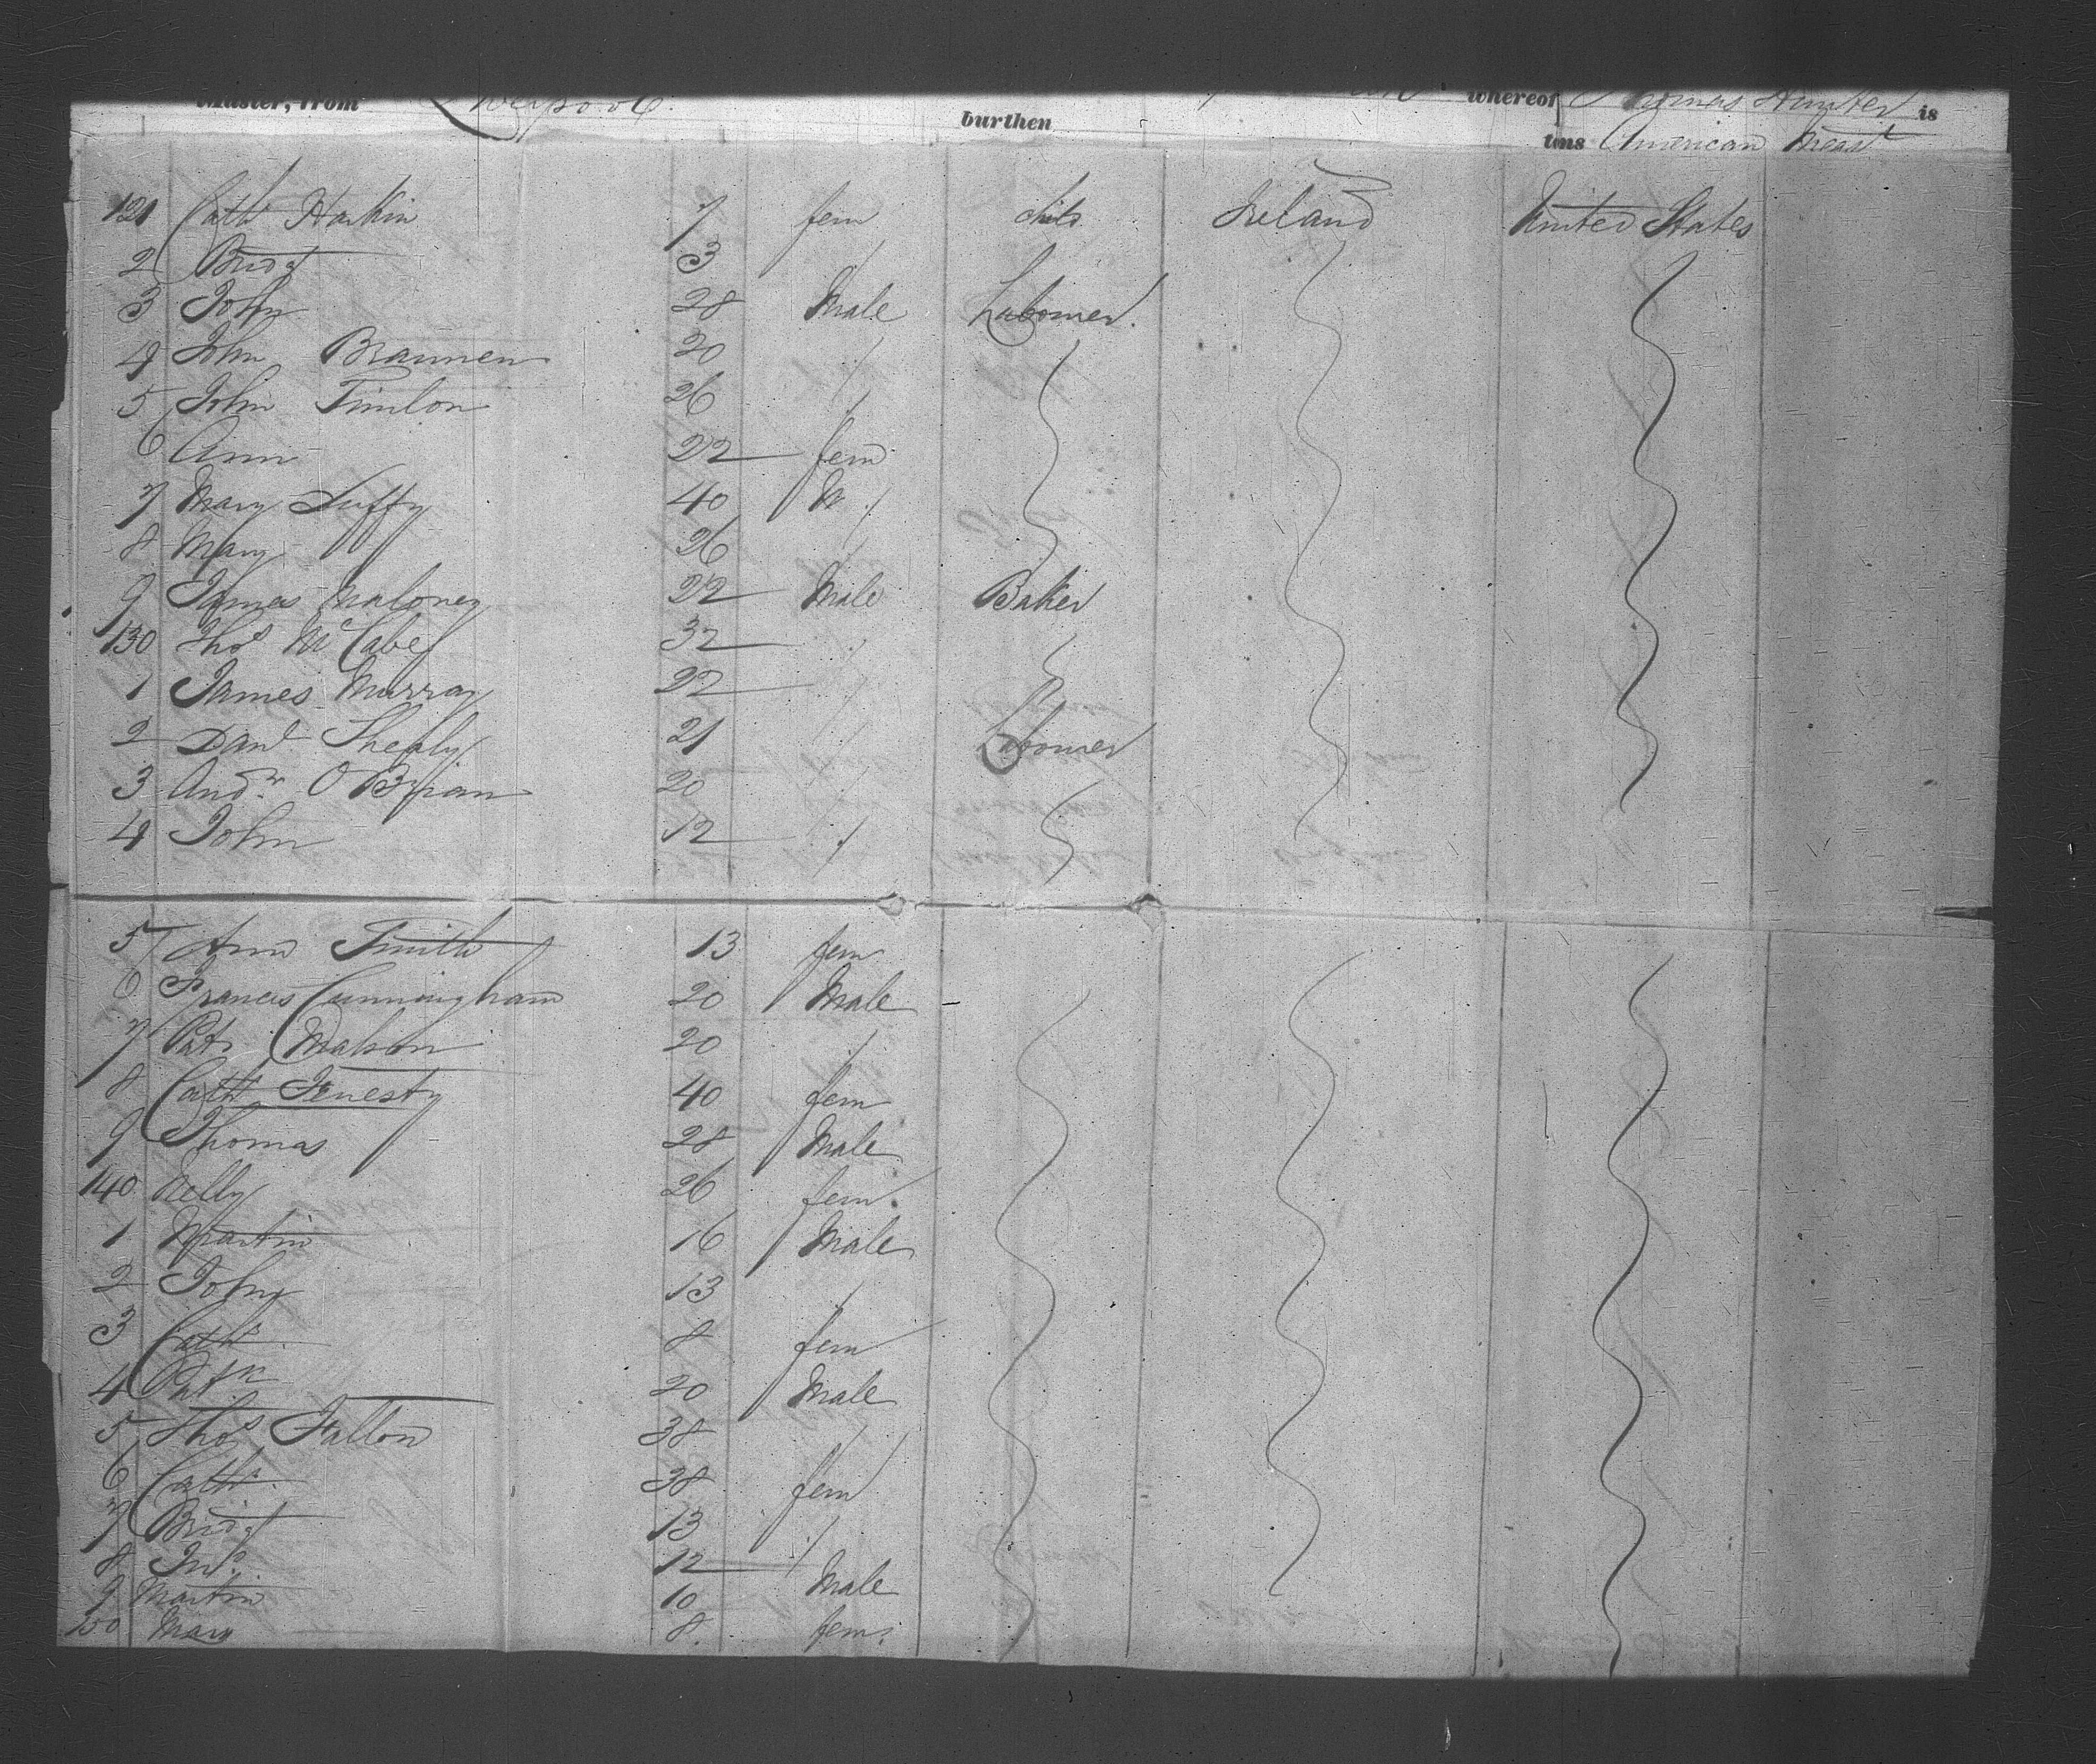 Master, from Liverpool. whereof Thomas Hunter is
burthen tons American Meast
121 Cath Harkin 7 fem child Ireland United States
2 Bridgt 3 /
3 John 28 Male Labourer.
4 John Brannen 20 /
5 John Timlon 26 /
6 Ann 22 fem
7 Mary Duffy 40 M /
8 Mary 26 /
9 James Maloney 22 Male Baker
130 Thos McCabe 32 /
1 James Murray 22 /
2 Danl Shealy 21 / Labourer
3 Andw O Brian 20 /
4 John 12 /
5 Ann Smith 13 fem
6 Francis Cunningham 20 Male
7 Pat 20 /
8 Cath Fenesty 40 fem
9 Thomas 28 Male
140 Nelly 26 fem
1 Martin 16 Male
2 John 13 /
3 Cath 8 fem
4 Patk 20 Male
5 Thos Fallon 38 /
6 Cath 38 fem
7 Bridgt 13 /
8 Jno 12 Male
9 Martin 10
150 Mary 8. fem.